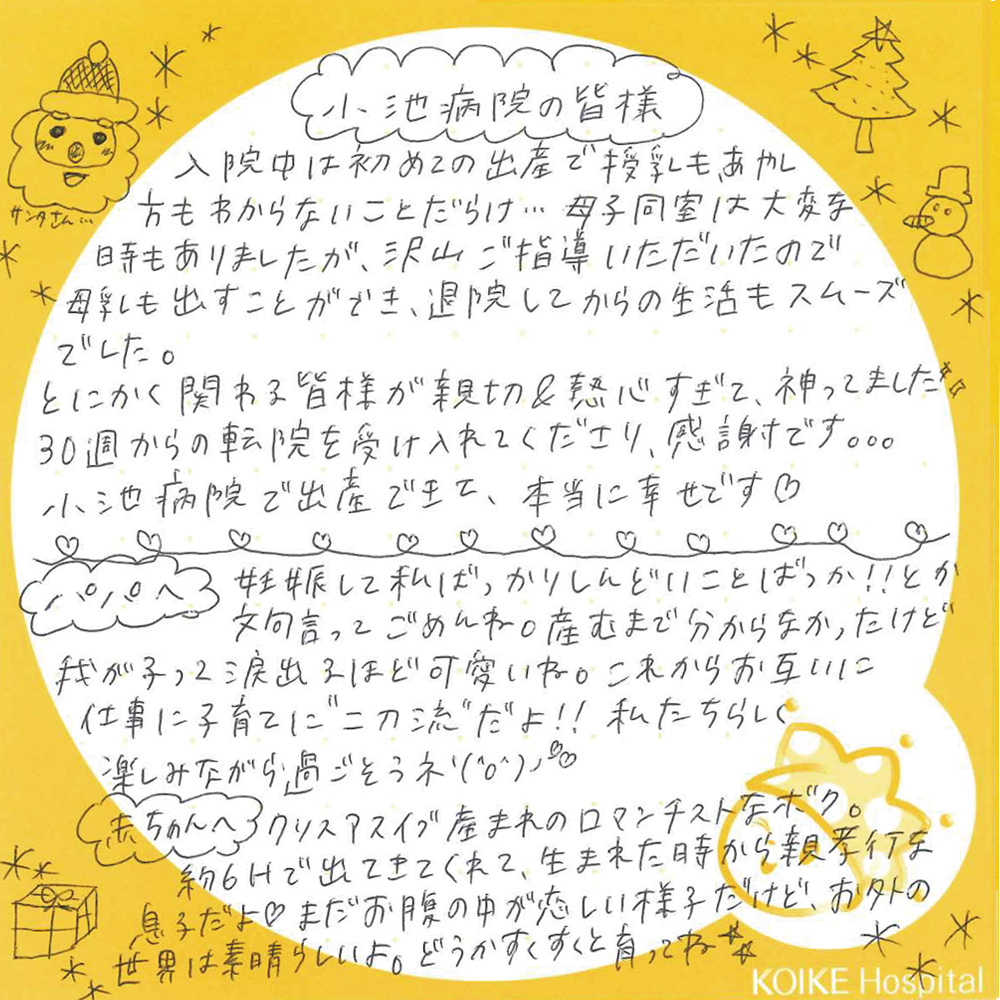 小池病院の皆様
入院中は初めての出産で授乳も、あやし
方もわからないことだらけ… 母子同室は大変な
時もありましたが、沢山ご指導いただいたので
母乳も出すことができ、退院してからの生活もスムーズ
でした。
とにかく関わる皆様が親切&熱心すぎて、神ってました
30週からの転院を受け入れてくださり、感謝です。。。
小池病院で出産できて、本当に幸せです♡
パパへ
妊娠して私ばっかりしんどいことばっか!!とか
文句言ってごめんね。産むまで分からなかったけど
我が子って涙出るほど可愛いね。これからお互いに
仕事に子育てに"二刀流"だよ!! 私たちらしく
楽しみながら過ごそうネ!(^o^)ノ♡
赤ちゃんへ クリスマスイブ産まれのロマンチストなボク。
約6Hで出てきてくれて、生まれた時から親孝行な
息子だよ♡まだお腹の中が恋しい様子だけど、お外の
世界は素晴らしいよ。どうかすくすくと育ってね
サンタさん…
KOIKE Hospital